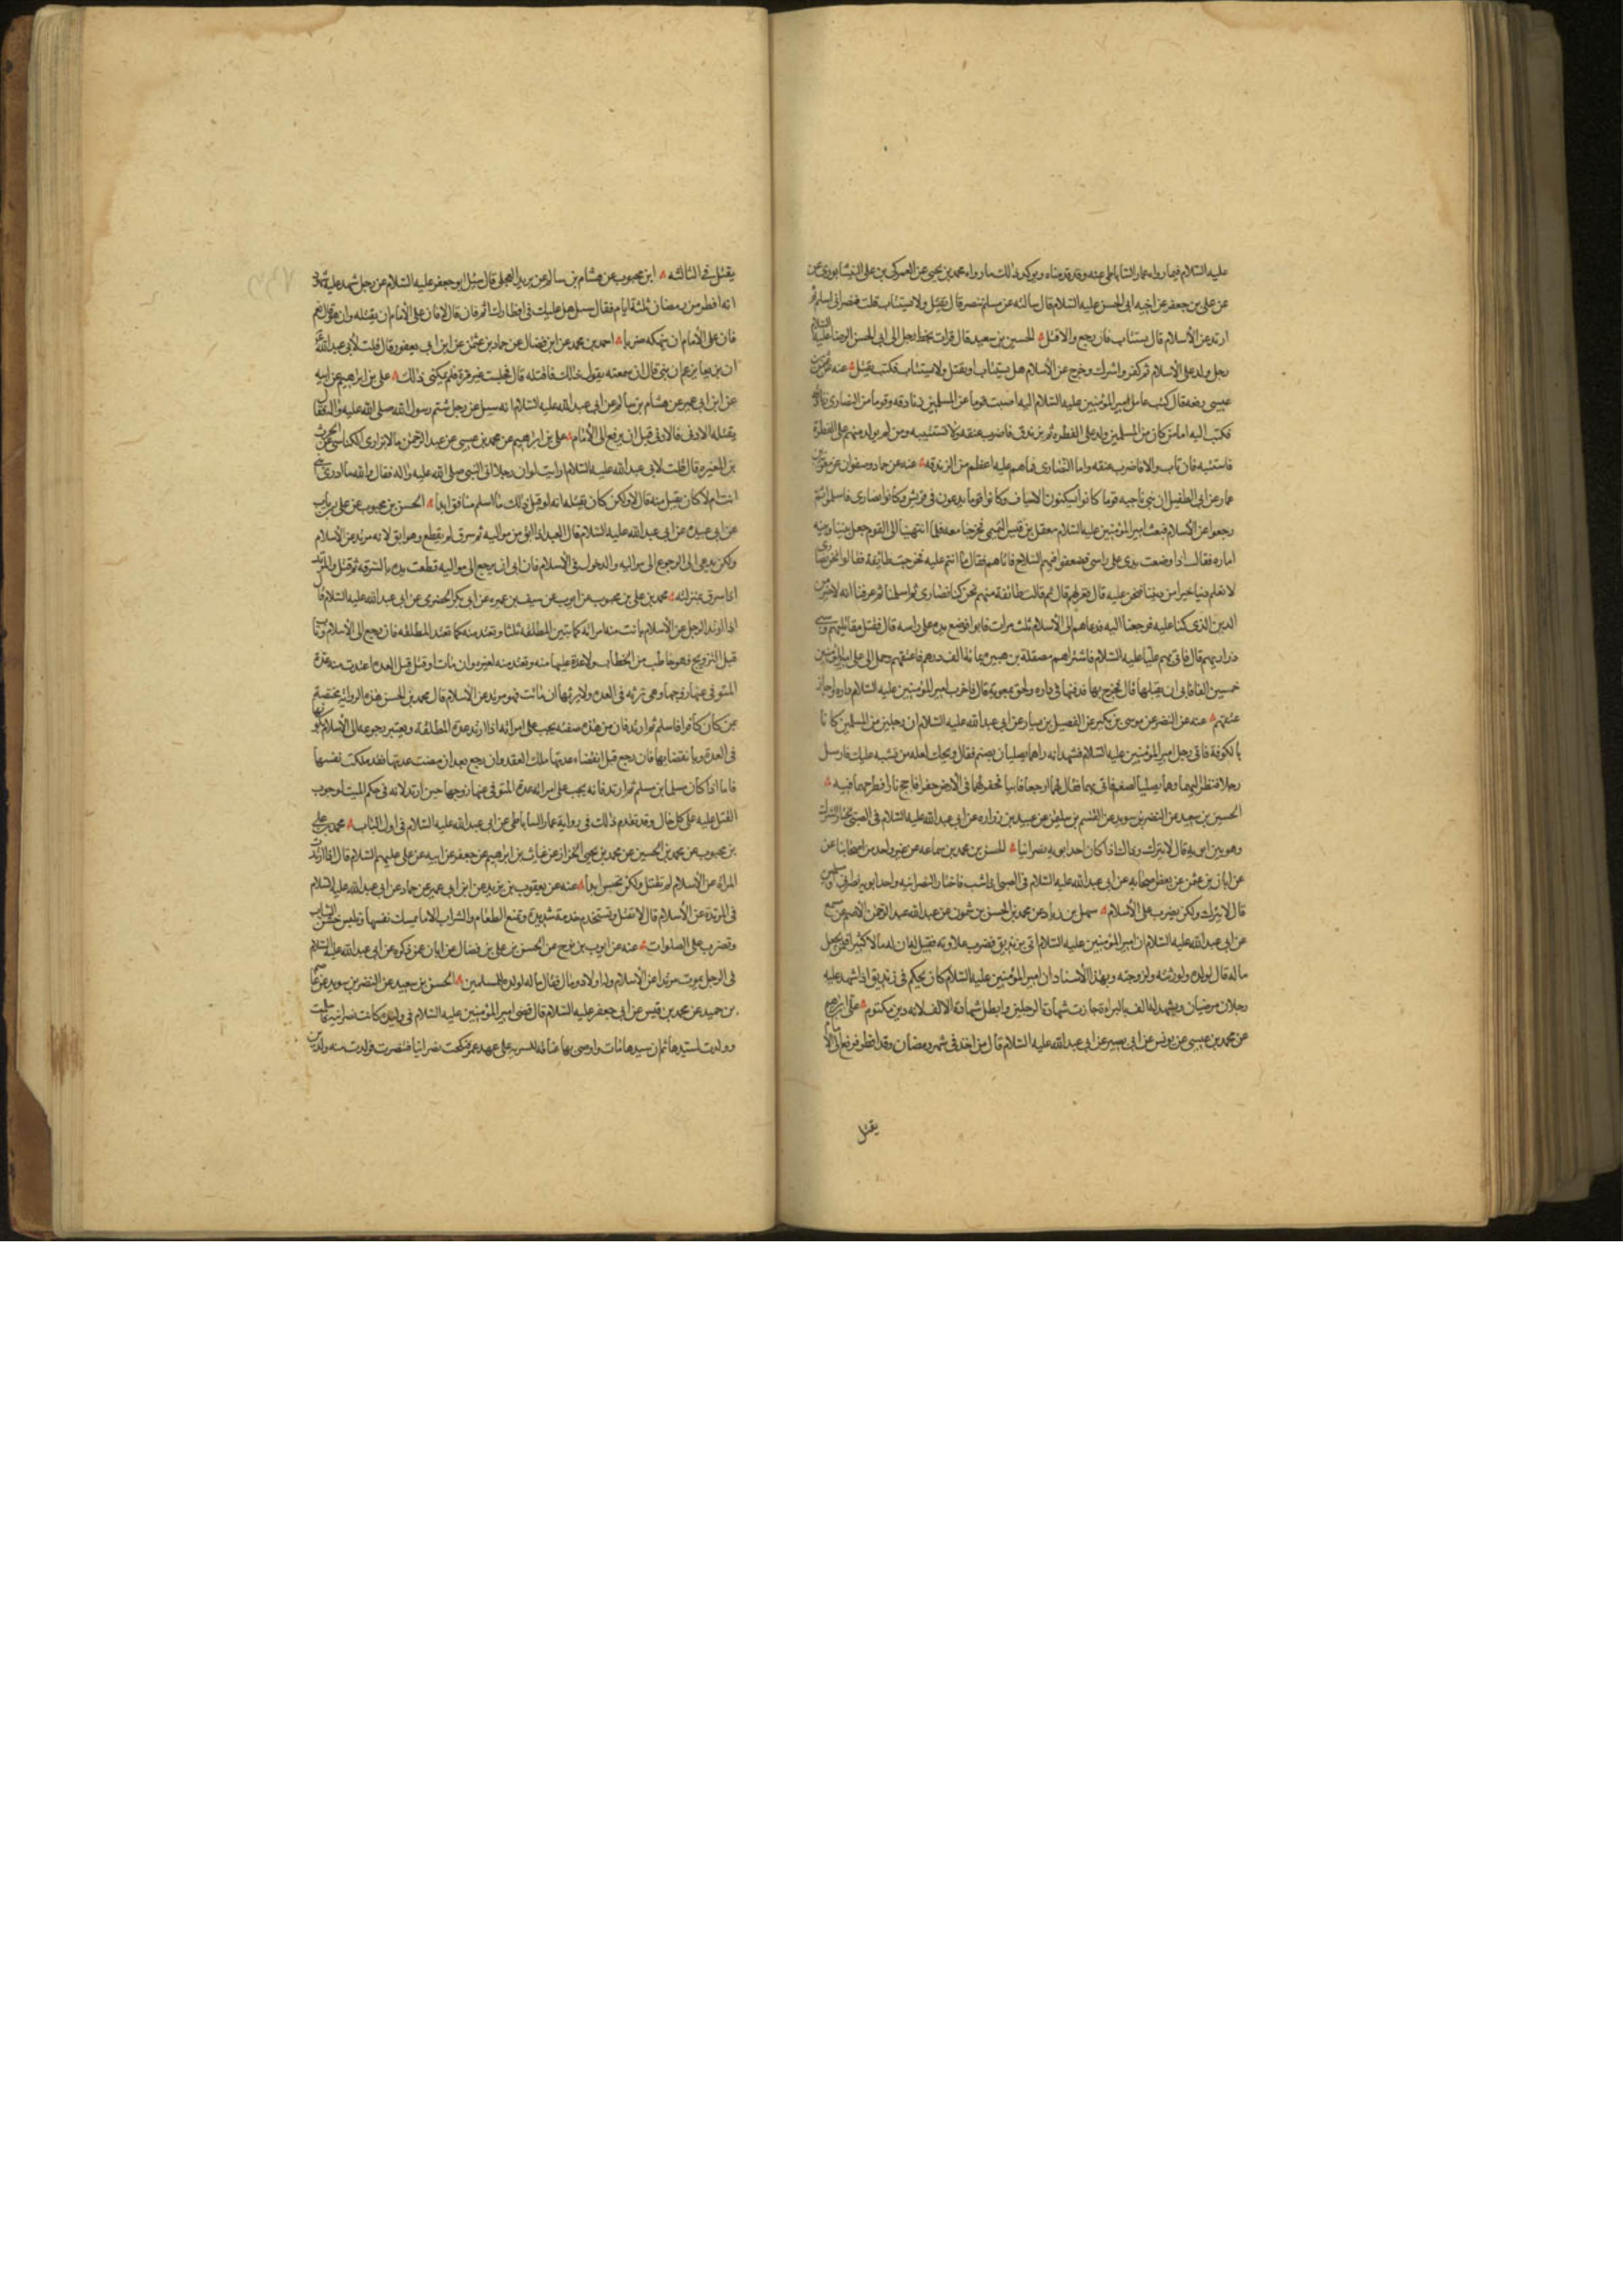 عليه السلام فيما رواه عمار الساباطى عنه وقد قدمناه ويوكد ذلك ما رواه محمد بن يحيى عن العمركى بن على النيشابورى عن
عن على بن جعفر عن اخيه ابى الحسن عليه السلام قال سالته عن مسلم تنصر قال يقتل ولا يستتاب قلت فنصرانى اسلم ثم
ارتد عن الاسلام قال يستتاب فان رجع والا قتل الحسين بن سعيد قال قرات بخط رجل الى ابى الحسن الرضا عليه السلام
رجل ولد على الاسلام ثم كفر واشرك وخرج عن الاسلام هل يستتاب او يقتل ولا يستتاب فكتب يقتل عنه عن عثمن بن
عيسى رفعه قال كتب عامل امير المؤمنين عليه السلام اليه اصبت قوما من المسلمين زنادقة وقوما من النصارى زنادقة
فكتب اليه اما من كان من المسلمين ولد على الفطرة ثم تزندق فاضرب عنقه ولا تستتيبه ومن لم يولد منهم على الفطرة
فاستتبه فان تاب والا فاضرب عنقه واما النصارى فما هم عليه اعظم من الزندقه عنه عن حماد وصفوان عن معويه بن
عمار عن ابى الطفيل ان بنى ناجيه قوما كانوا يسكنون الاسياف وكانوا قوما يدعون فى قريش وكانوا نصارى فاسلموا ثم
رجعوا عن الاسلام فبعث امير المؤمنين عليه السلام معقل بن قيس التميمى فخرجنا معه فلما انتهينا الى القوم جعل بيننا وبينه
اماره فقال اذا وضعت يدى على راسى فضعوا فيهم السلاح فاتاهم فقال ما انتم عليه فخرجت طائفة فقالوا نحن نصارى
لا نعلم دينا خيرا من ديننا فنحن عليه قال فعزلهم قال ثم قالت طائفة منهم نحن كنا نصارى ثم اسلمنا ثم عرفنا انه لا خير من
الدين الذى كنا عليه فرجعنا اليه فدعاهم الى الاسلام ثلث مرات فابوا فوضع يده على راسه قال فقتل مقاتليهم وسبى
ذراريهم قال فاتى بهم عليا عليه السلام فاشتراهم مصقلة بن هبيرة بمائة الف درهم فاعتقهم وحمل الى على امير المؤمنين
خمسين الفا فابى ان يقبلها قال فخرج بها فدفنها فى داره ولحق بمعويه قال فاخرب امير المؤمنين عليه السلام داره واجاز
عتقهم عنه عن النضر عن موسى بن بكير عن الفضيل بن يسار عن ابى عبد الله عليه السلام ان رجلين من المسلمين كانا
بالكوفة فاتى رجل امير المؤمنين عليه السلام فشهد انه راهما يصليان لصنم فقال ويحك لعله من تشبه عليك فارسل
رجلا فنظر اليهما وهما يصليان لصنم فاتى بهما فقال لهما ارجعا فابيا فخد لهما فى الارض حفرا فاجج نارا فطرحهما فيه
الحسين بن سعيد عن النضر بن سويد عن القسم بن سليمن عن عبيد بن زراره عن ابى عبد الله عليه السلام فى الصبى يختار الشرك
وهو بين ابويه قال لا يترك وذاك اذا كان احد ابويه نصرانيا الحسن بن محمد بن سماعه عن غير واحد من اصحابنا عن
عن ابان بن عثمن عن بعض اصحابه عن ابى عبد الله عليه السلام فى الصبى اذا شب فاختار النصرانيه واحد ابويه نصرانى او مسلمين
قال لا يترك ولكن يضرب على الاسلام سهل بن زياد عن محمد بن الحسن بن شمون عن عبد الله عبد الرحمن الاصم عن مسمع
عن ابى عبد الله عليه السلام ان امير المؤمنين عليه السلام اتى بزنديق فضرب علاوته فقيل له ان له مالا كثيرا فلمن يجعل
ماله قال لولده ولورثته ولزوجته وبهذا الاسناد ان امير المؤمنين عليه السلام كان يحكم فى زنديق اذا شهد عليه
رجلان مرضيان وشهد له الف بالبراءة جازت شهادة الرجلين وابطل شهادة الالف لانه دين مكتوم على بن ابرهيم
عن محمد بن عيسى عن يونس عن ابى بصير عن ابى عبد الله عليه السلام قال من اخذ فى شهر رمضان وقد افطر فرفع الى الامام
يقتل
يقتل فى الثالثه ابن محبوب عن هشام بن سالم عن بريد العجلى قال سئل ابو جعفر عليه السلام عن رجل شهد عليه شهود
انه افطر من رمضان ثلثة ايام فقال يسئل هل عليك فى افطارك اثم فان قال لا فان على الامام ان يقتله وان هو قال نعم
فان على الامام ان ينهكه ضربا احمد بن محمد عن ابن فضال عن حماد بن عثمن عن ابن ابى يعفور قال قلت لابى عبد الله
ان بزيعا يزعم انه نبى قال ان سمعته يقول ذلك فاقتله قال فجلست غير مرة فلم يمكنى ذلك على بن ابراهيم عن ابيه
عن ابن ابى عمير عن هشام بن سالم عن ابى عبد الله عليه السلام انه سئل عن رجل شتم رسول الله صلى الله عليه واله فقال
يقتله الادنى فالادنى قبل ان يرفع الى الامام على بن ابراهيم عن محمد بن عيسى عن عبد الرحمن الابزارى الكناسى عن الحرث
بن المغيره قال قلت لابى عبد الله عليه السلام ارايت لو ان رجلا اتى النبى صلى الله عليه واله فقال والله ما ادرى انبى
انت ام لا كان يقبل منه قال لا ولكن كان يقتله انه لو قبل ذلك ما اسلم منافق ابدا الحسن بن محبوب عن على بن رياب
عن ابى عبيده عن ابى عبد الله عليه السلام قال العبد اذا ابق من مواليه ثم سرق لم يقطع وهو ابق لانه مرتد عن الاسلام
ولكن يدعى الى الرجوع الى مواليه والدخول فى الاسلام فان ابى ان يرجع الى مواليه قطعت يده بالسرقه ثم قتل والمرتد
اذا سرق بمنزلته محمد بن على بن محبوب عن ايوب عن سيف بن عميره عن ابى بكر الحضرمى عن ابى عبد الله عليه السلام قال
اذا ارتد الرجل عن الاسلام بانت منه امراته كما تبين المطلقه ثلثا وتعتد منه كما تعتد المطلقه فان رجع الى الاسلام وتاب
قبل التزويج فهو خاطب من الخطاب ولا عدة عليها منه وتعتد منه لغيره وان مات او قتل قبل العده اعتدت منه عدة
المتوفى عنها زوجها وهى ترثه فى العدة ولا يرثها ان ماتت فهو مرتد عن الاسلام قال محمد بن الحسن هذه الرواية مختصة
بمن كان كافرا فاسلم ثم ارتد فان من هذه صفته يجب على امراته اذا ارتد عدة المطلقه ويعتبر رجوعه الى الاسلام كونها
فى العدة وبانقضائها فان رجع قبل انقضاء عدتها ملك العقد وان رجع بعد ان مضت عدتها فقد ملكت نفسها
فاما اذا كان مسلما بن مسلم ثم ارتد فانه يجب على امراته عدة المتوفى عنها زوجها حين ارتد لانه فى حكم الميت لوجوب
القتل عليه على كل حال وقد تقدم ذلك فى رواية عمار الساباطى عن ابى عبد الله عليه السلام فى اول الباب محمد بن على
بن محبوب عن محمد بن الحسين عن محمد بن يحيى الخزاز عن غياث بن ابراهيم عن جعفر عن ابيه عن على عليهم السلام قال اذا ارتدت
المراة عن الاسلام لم تقتل ولكن تحبس ابدا عنه عن يعقوب بن يزيد عن ابن ابى عمير عن حماد عن ابى عبد الله عليه السلام
فى المرتدة عن الاسلام قال لا تقتل وتستخدم خدمة شديدة وتمنع الطعام والشراب الا ما يمسك نفسها وتلبس خشن الثياب
وتضرب على الصلوات عنه عن ايوب بن نوح عن الحسن بن على بن فضال عن ابان عمن ذكره عن ابى عبد الله عليه السلام
فى الرجل يموت مرتدا عن الاسلام وله اولاد ومال فقال ماله لولده المسلمين الحسين بن سعيد عن النضر بن سويد عن عاصم
بن حميد عن محمد بن قيس عن ابى جعفر عليه السلام قال قضى امير المؤمنين عليه السلام فى وليدة كانت نصرانية فاسلمت
وولدت لسيدها ثم ان سيدها مات واوصى بها عتاقة السرية على عهد عمر فنكحت نصرانيا فتنصرت فولدت منه ولدين